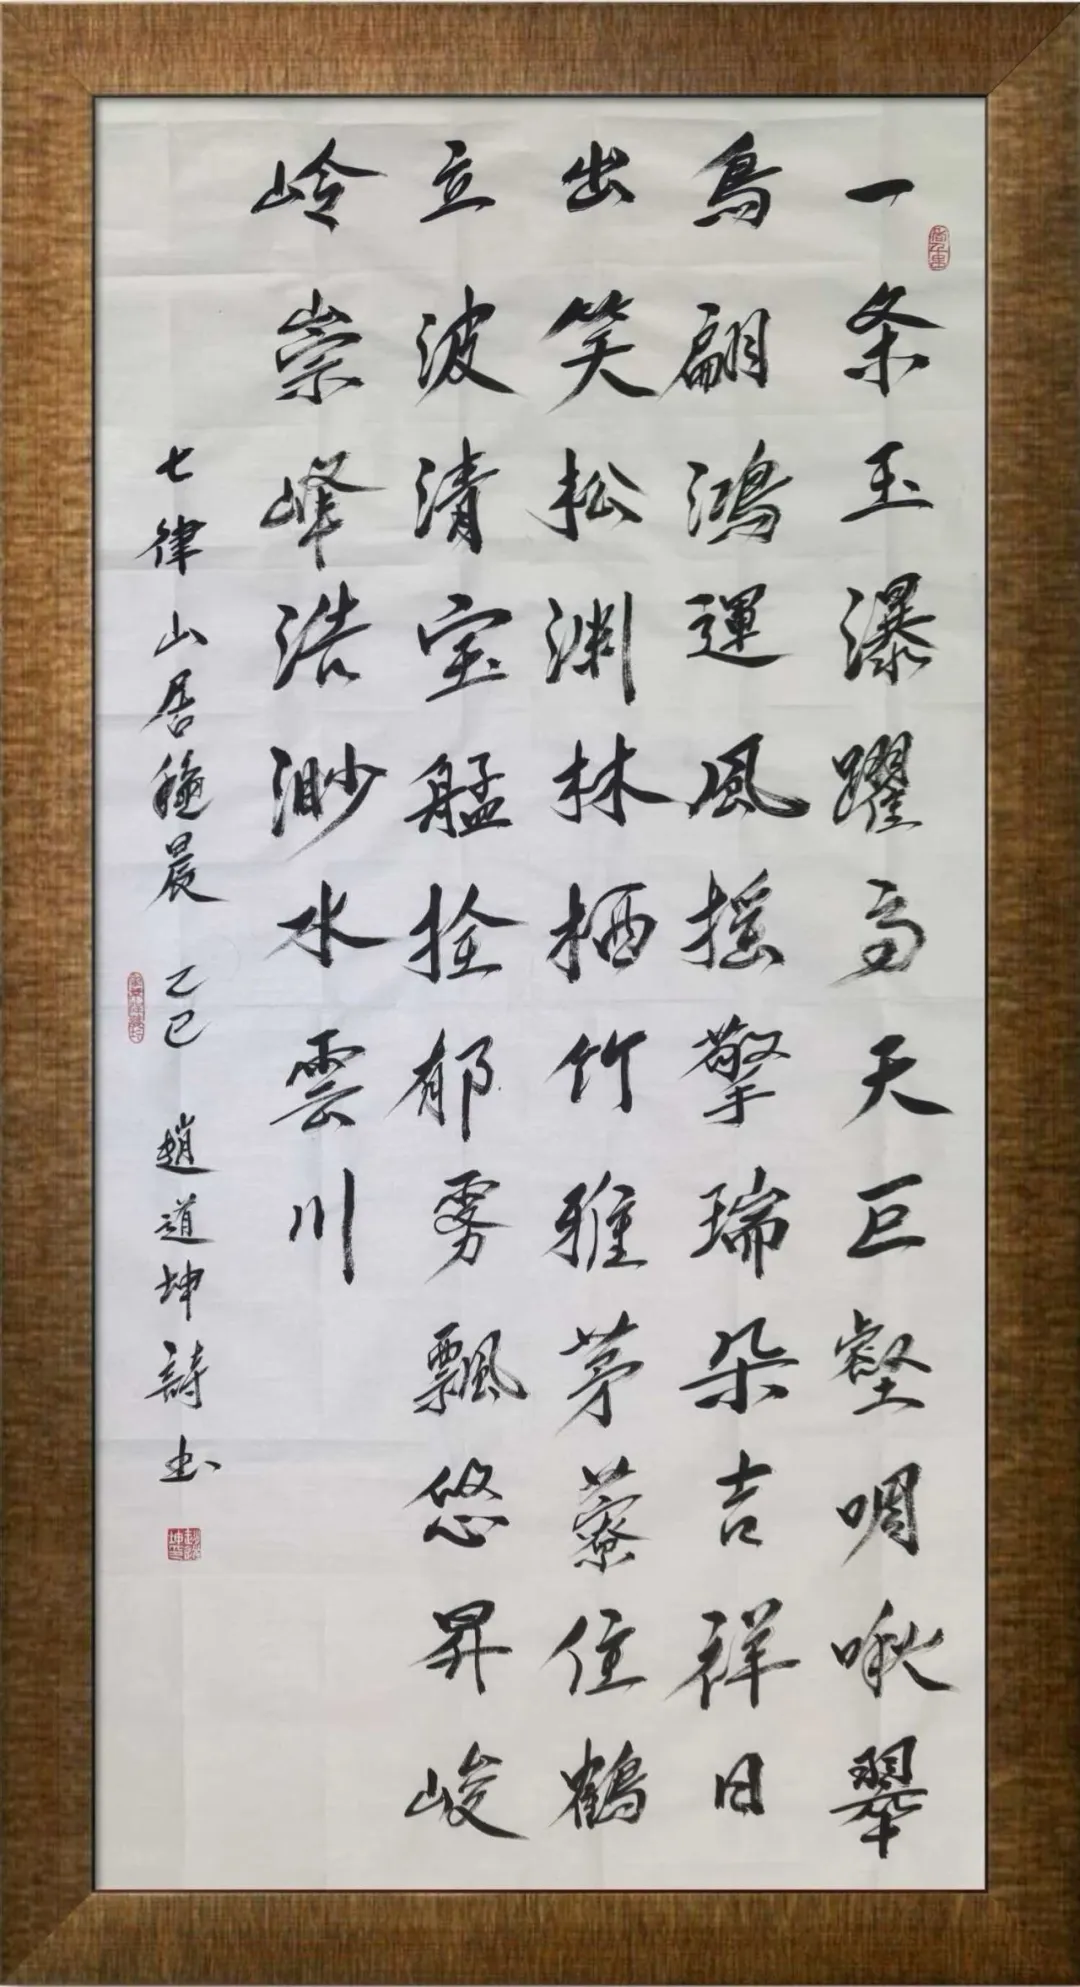 一条玉瀑躍高天巨壑啁啾翠
鳥翩鴻運風摇擎瑞朵吉祥日
出笑松渊林栖竹雅茅藔住鶴
立波清宝艋拴郁雾飄悠昇峻
岭崇峰浩渺水雲川
七律山居穐晨 乙巳 趙道坤詩书